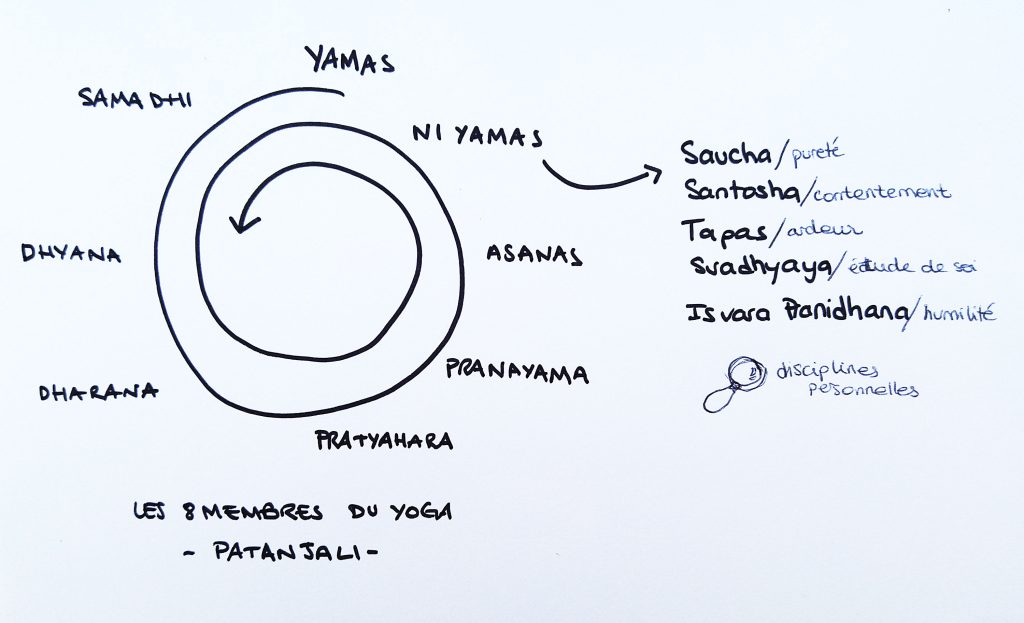 YAMAS
NIYAMAS
ASANAS
PRANAYAMA
PRATYAHARA
DHARANA
DHYANA
SAMADHI
Saucha/pureté
Santosha/contentement
Tapas/ardeur
Svadhyaya/étude de soi
Isvara Pranidhana/humilité
disciplines
personnelles
LES 8 MEMBRES DU YOGA
- PATANJALI -